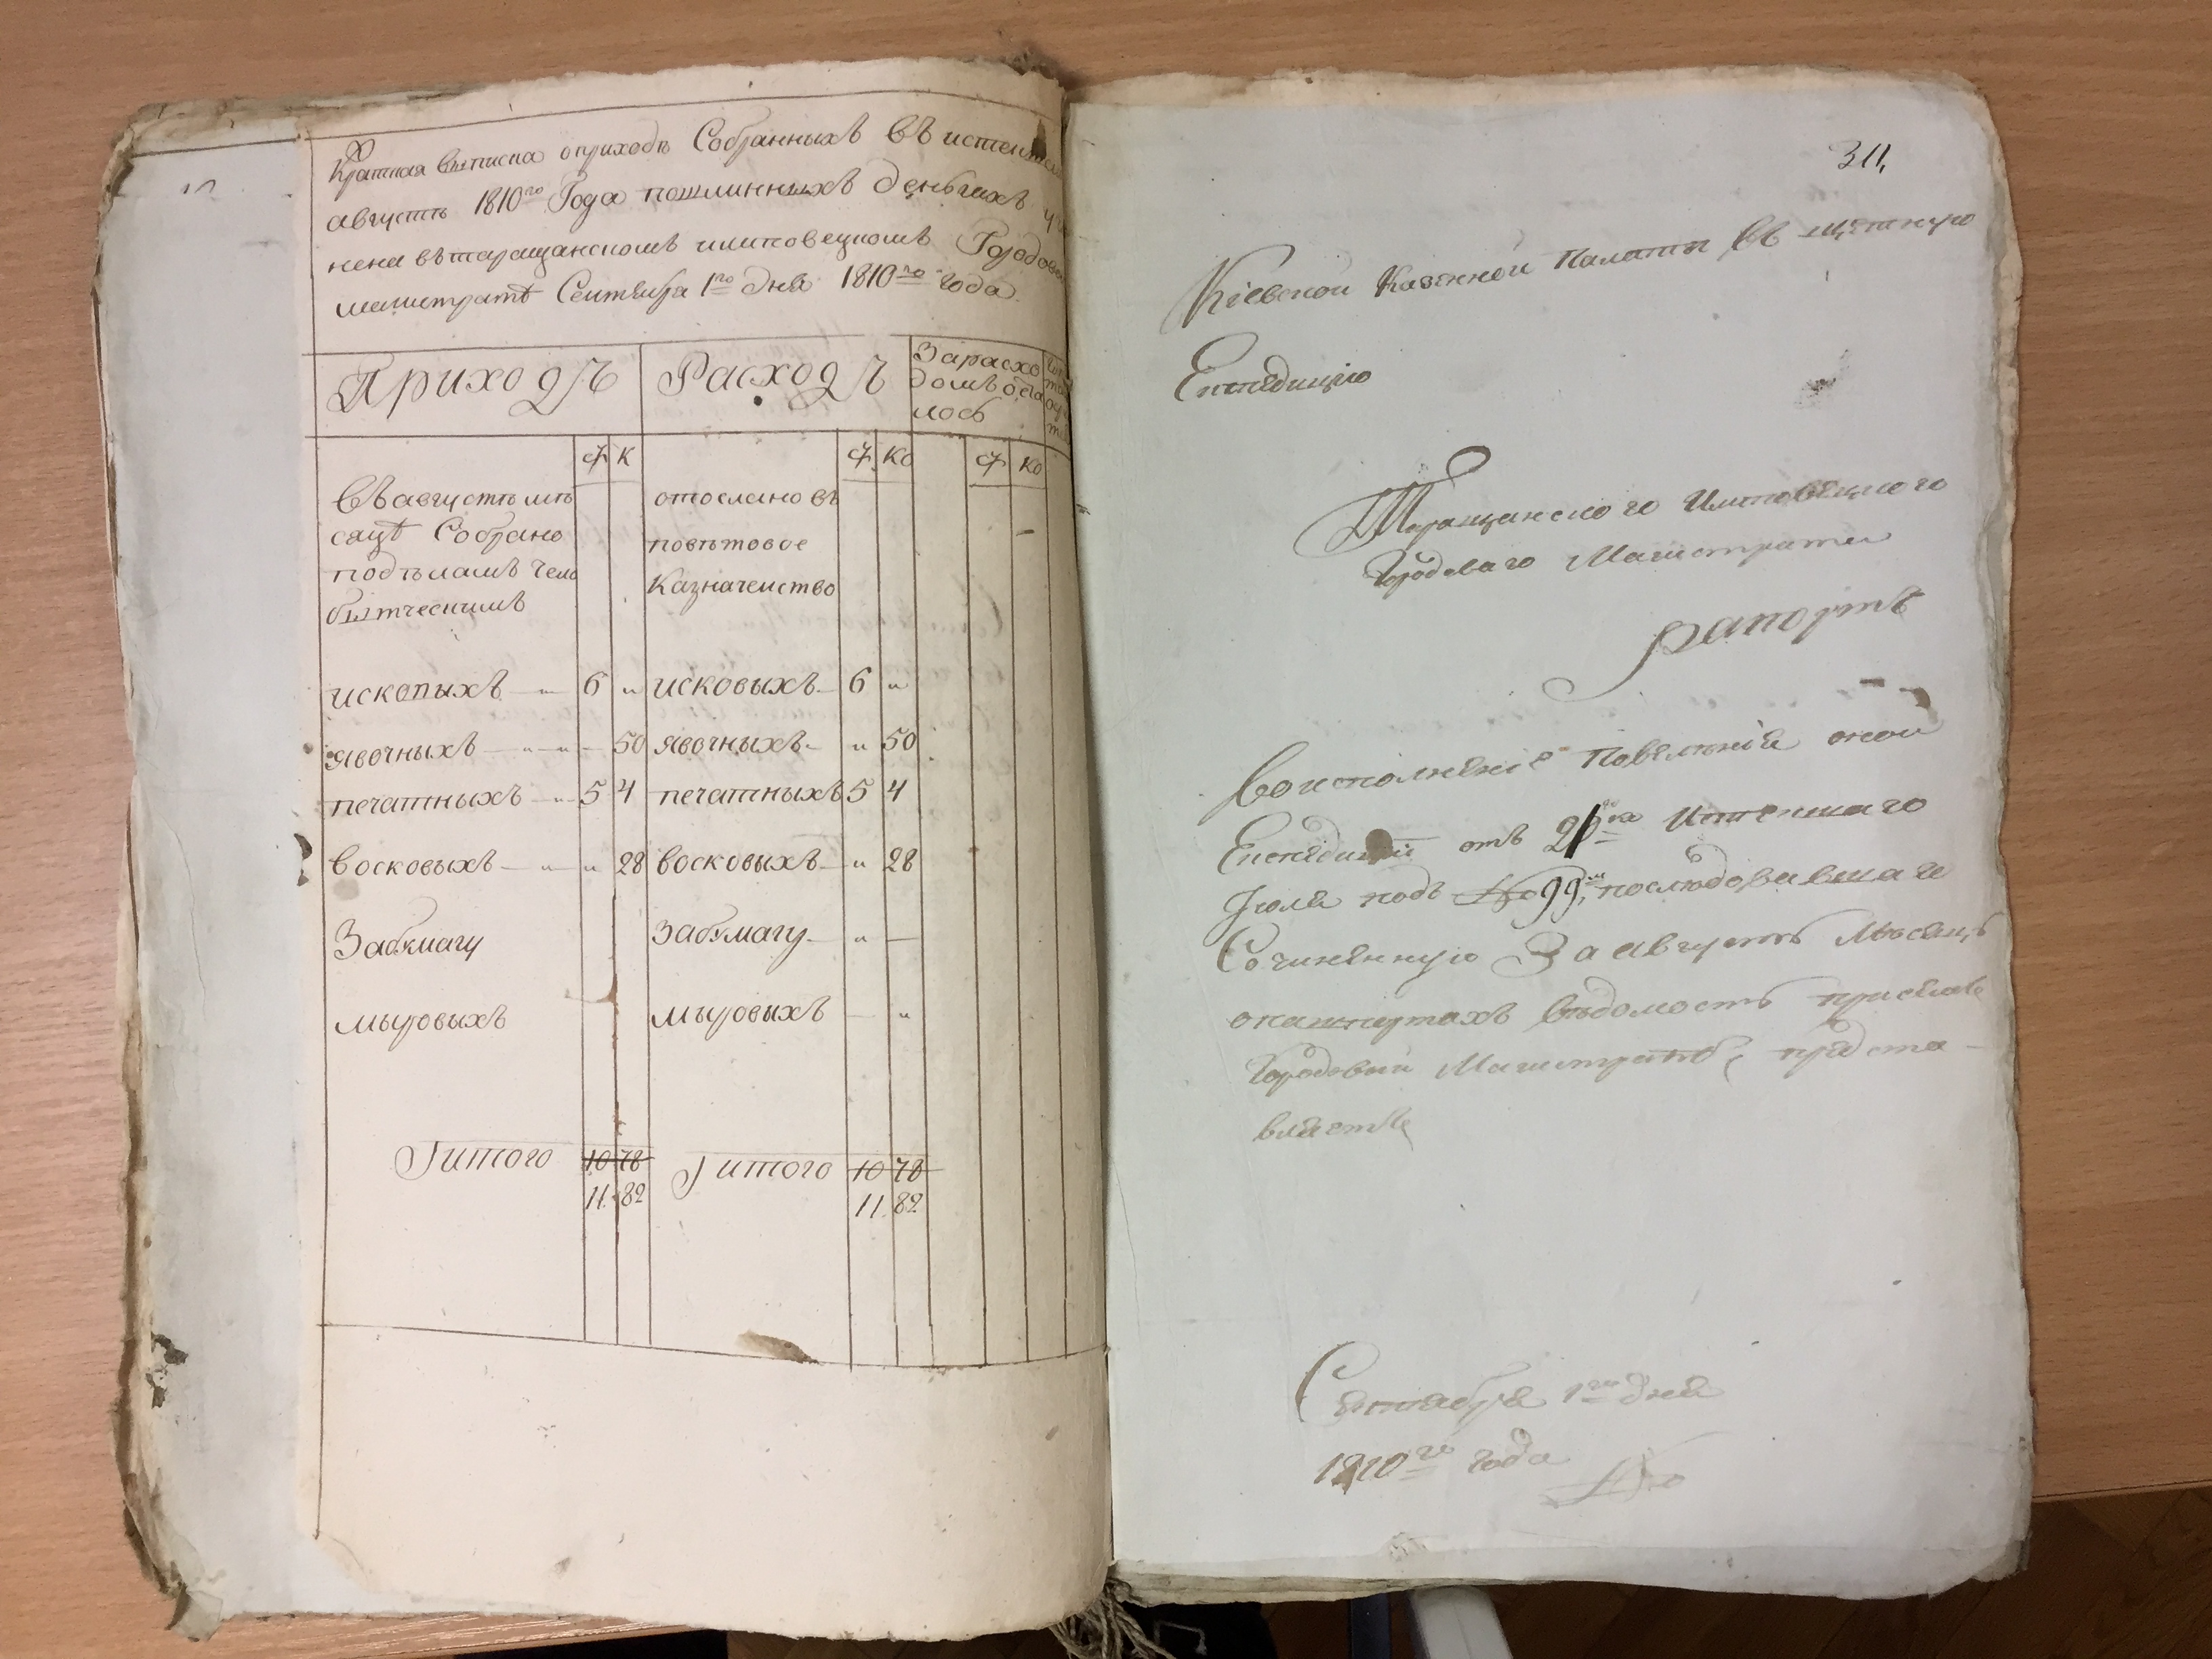 Краткая выписка оприходѣ Собранныхъ въ истекшемъ
августѣ 1810го Года пошлинныхъ деньгихъ учи
нена въ таращанскомъ илиповецкомъ Городовомъ
магистратѣ Сентября 1го дня 1810го года.
Приходъ Расходъ Зарасхо
домъ оста
лось
К Ко Ко
Въ августѣ мѣ
сяцѣ Собрано
подѣламъ чело
бытческимъ
отослано въ
повѣтовое
Казначеиство
исковыхъ 6 " исковыхъ 6 "
явочныхъ 50 явочныхъ " 50
печатныхъ 5 4 печатныхъ 5 4
восковыхъ " 28 восковыхъ " 28
Забумагу Забумагу " —
мыровыхъ мыровыхъ — "
Iитого 10 78 Iитого 10 78
11. 82 11. 82
311,
Кіевской Казенной Палаты въ щетную
Експедицію
Таращанского Илиповецкого
Городоваго Магистрата
рапортъ
Воисполненіе повеленія оной
Експедиціи отъ истекшаго
Іюля подъ No 99м, последовавшаго
Сочиненную За августъ Мѣсяцъ
опашпортахъ вѣдомость присемъ
Городовый Магистратъ, предста-
вляетъ
Сентября 1го дня
1810го года
No